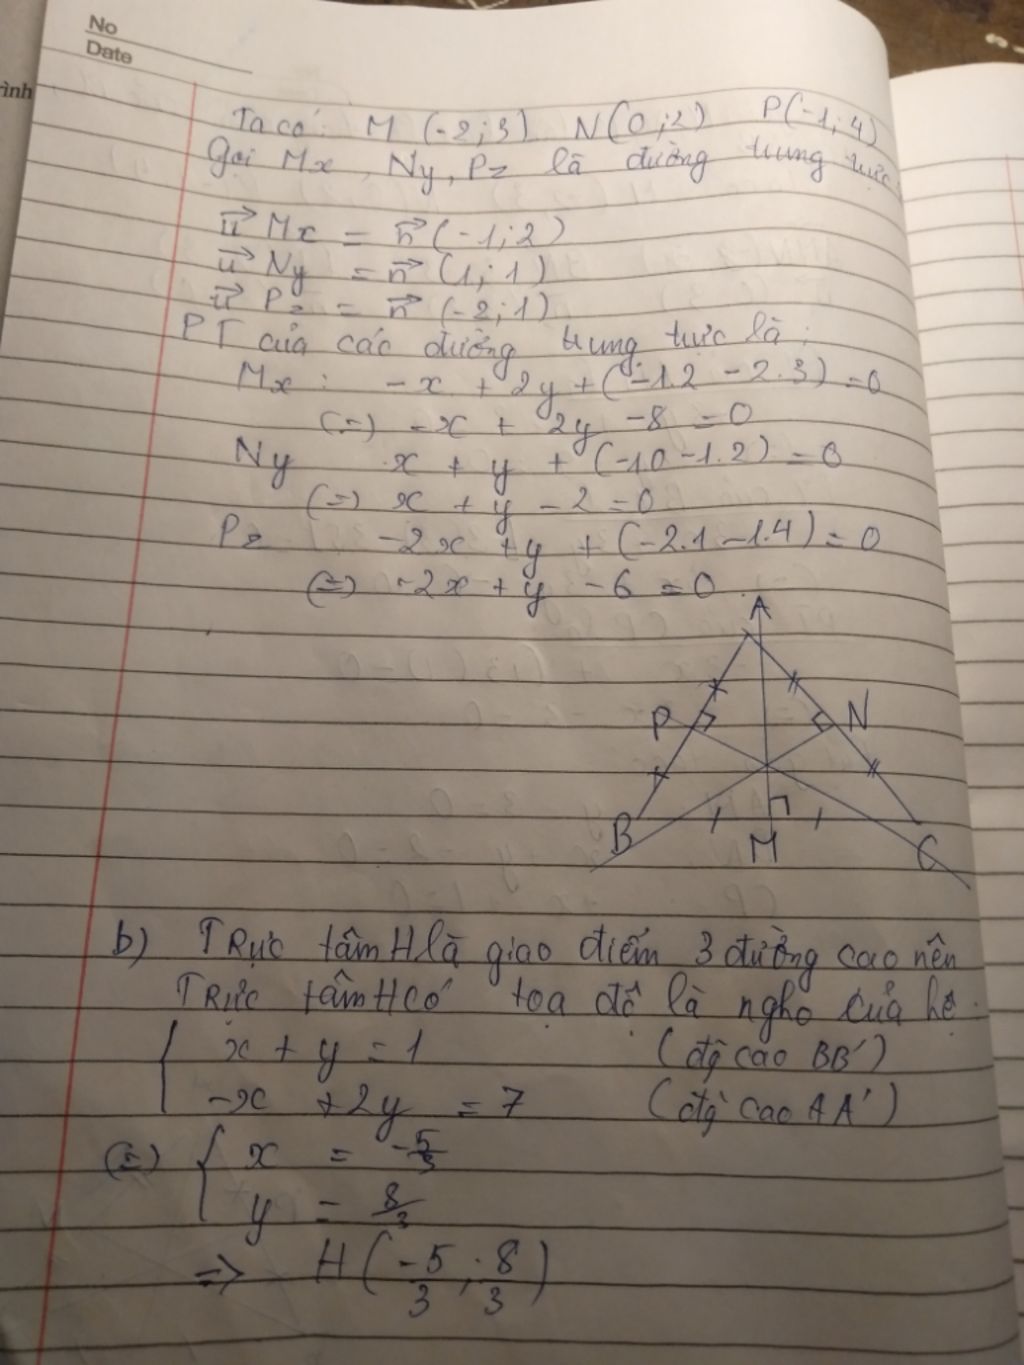 No
Date
rình
Ta có: M (-2;3) N(0;2) P(-1;4)
Gọi Mx, Ny, Pz là đường trung trực:
u⃗ Mx = n⃗ (-1;2)
u⃗ Ny = n⃗ (1;1)
u⃗ Pz = n⃗ (-2;1)
PT của các đường trung trực là:
Mx: -x + 2y + (-1.2 - 2.3) = 0
(=) -x + 2y - 8 = 0
Ny x + y + (-1.0 - 1.2) = 0
(=) x + y - 2 = 0
Pz -2x + y + (-2.1 - 1.4) = 0
(=) -2x + y - 6 = 0
A
P N
B M C
b) TRực tâm H là giao điểm 3 đường cao nên
TRực tâm H có tọa độ là ngho của hệ.
x + y = 1 (đg cao BB')
-x + 2y = 7 (đg cao AA')
(=) { x = -5/3
y = 8/3
=> H(-5/3; 8/3)